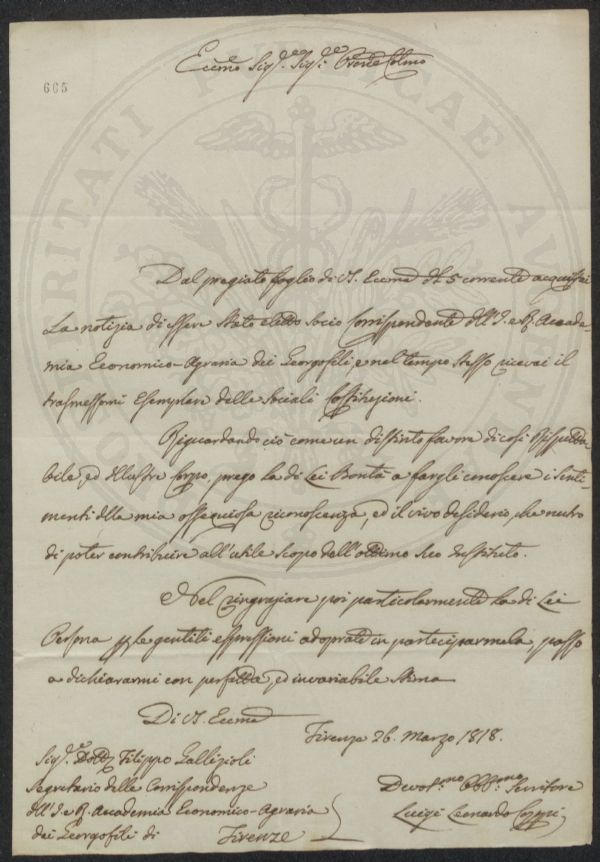 Eccmo Sigre. Sigre. Prone Colmo
665
Dal pregiato foglio di V. Eccma de 5 corrente acquistai
La notizia di essere stato eletto Socio Corrispondente dell'I. e R. Accade-
mia Economico-Agraria dei Georgofili, e nel tempo stesso ricevei il
trasmessomi Esemplare delle Sociali Costituzioni.
Riguardando ciò come un distinto favore di così Rispetta
bile ed Illustre Corpo, prego la di Lei Bontà a fargli conoscere i Senti-
menti della mia ossequiosa riconoscenza, ed il vivo desiderio, che nutro
di poter contribuire all'utile scopo dell'ottimo suo Instituto.
Nel ringraziare poi particolarmente la di Lei
Persona per le gentili espressioni adoprate in parteciparmela, passo
a dichiararmi con perfetta, ed invariabile Stima
Di V. Eccma
Firenze 26. Marzo 1818.
Sigre. Dotte Filippo Gallizioli
Segretario delle Corrispondenze
dell'I. e R. Accademia Economico-Agraria
dei Georgofili di Firenze
Devot.mo Obb.mo Servitore
Luigi Leonardo